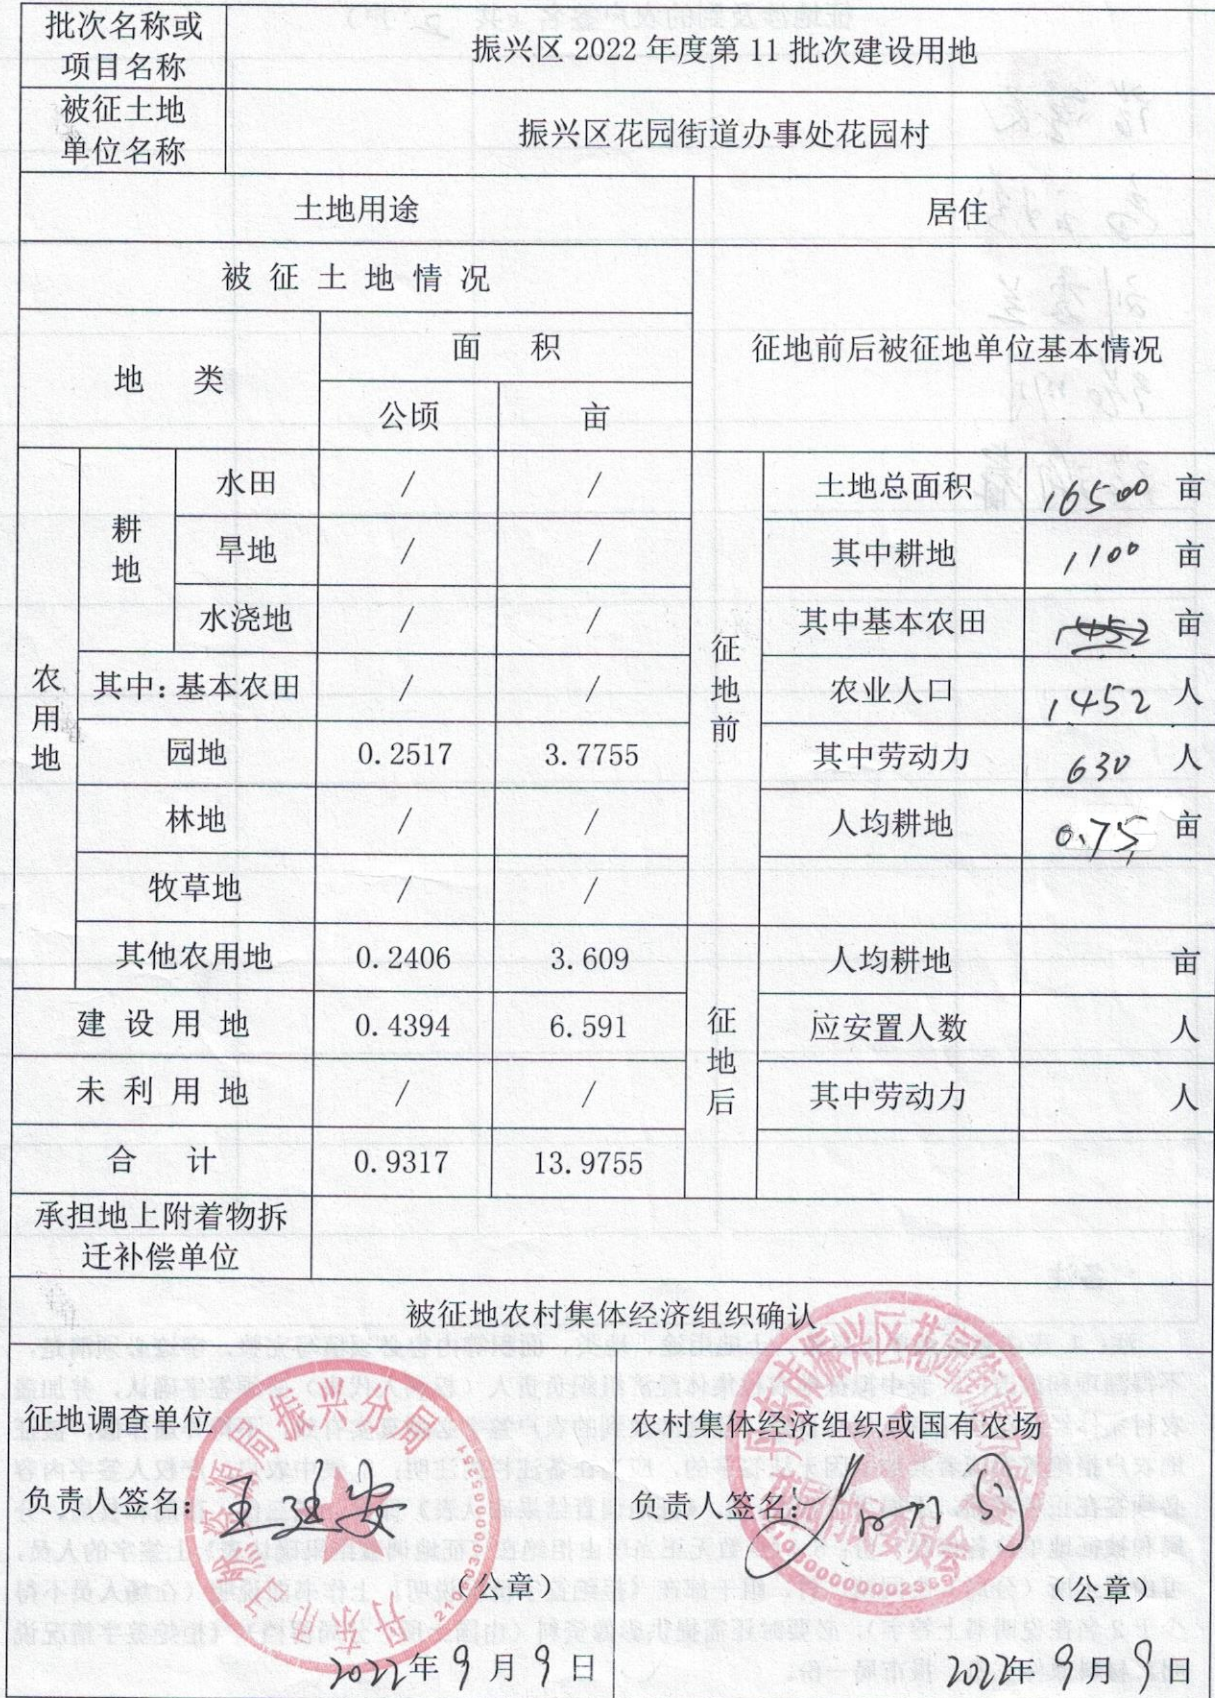 批次名称或
项目名称
振兴区 2022 年度第 11 批次建设用地
被征土地
单位名称
振兴区花园街道办事处花园村
土地用途 居住
被 征 土 地 情 况
征地前后被征地单位基本情况
地 类
面 积
公顷 亩
农用地
耕地
水田 / /
旱地 / /
水浇地 / /
其中：基本农田 / /
园地 0.2517 3.7755
林地 / /
牧草地 / /
其他农用地 0.2406 3.609
建 设 用 地 0.4394 6.591
未 利 用 地 / /
合 计 0.9317 13.9755
征地前
土地总面积 16500 亩
其中耕地 1100 亩
其中基本农田 1452 亩
农业人口 1452 人
其中劳动力 630 人
人均耕地 0.75 亩
征地后
人均耕地 亩
应安置人数 人
其中劳动力 人
承担地上附着物拆
迁补偿单位
被征地农村集体经济组织确认
征地调查单位
负责人签名：王廷安
（公章）
2022年 9 月 9 日
农村集体经济组织或国有农场
负责人签名：
（公章）
2022年 9 月 9 日